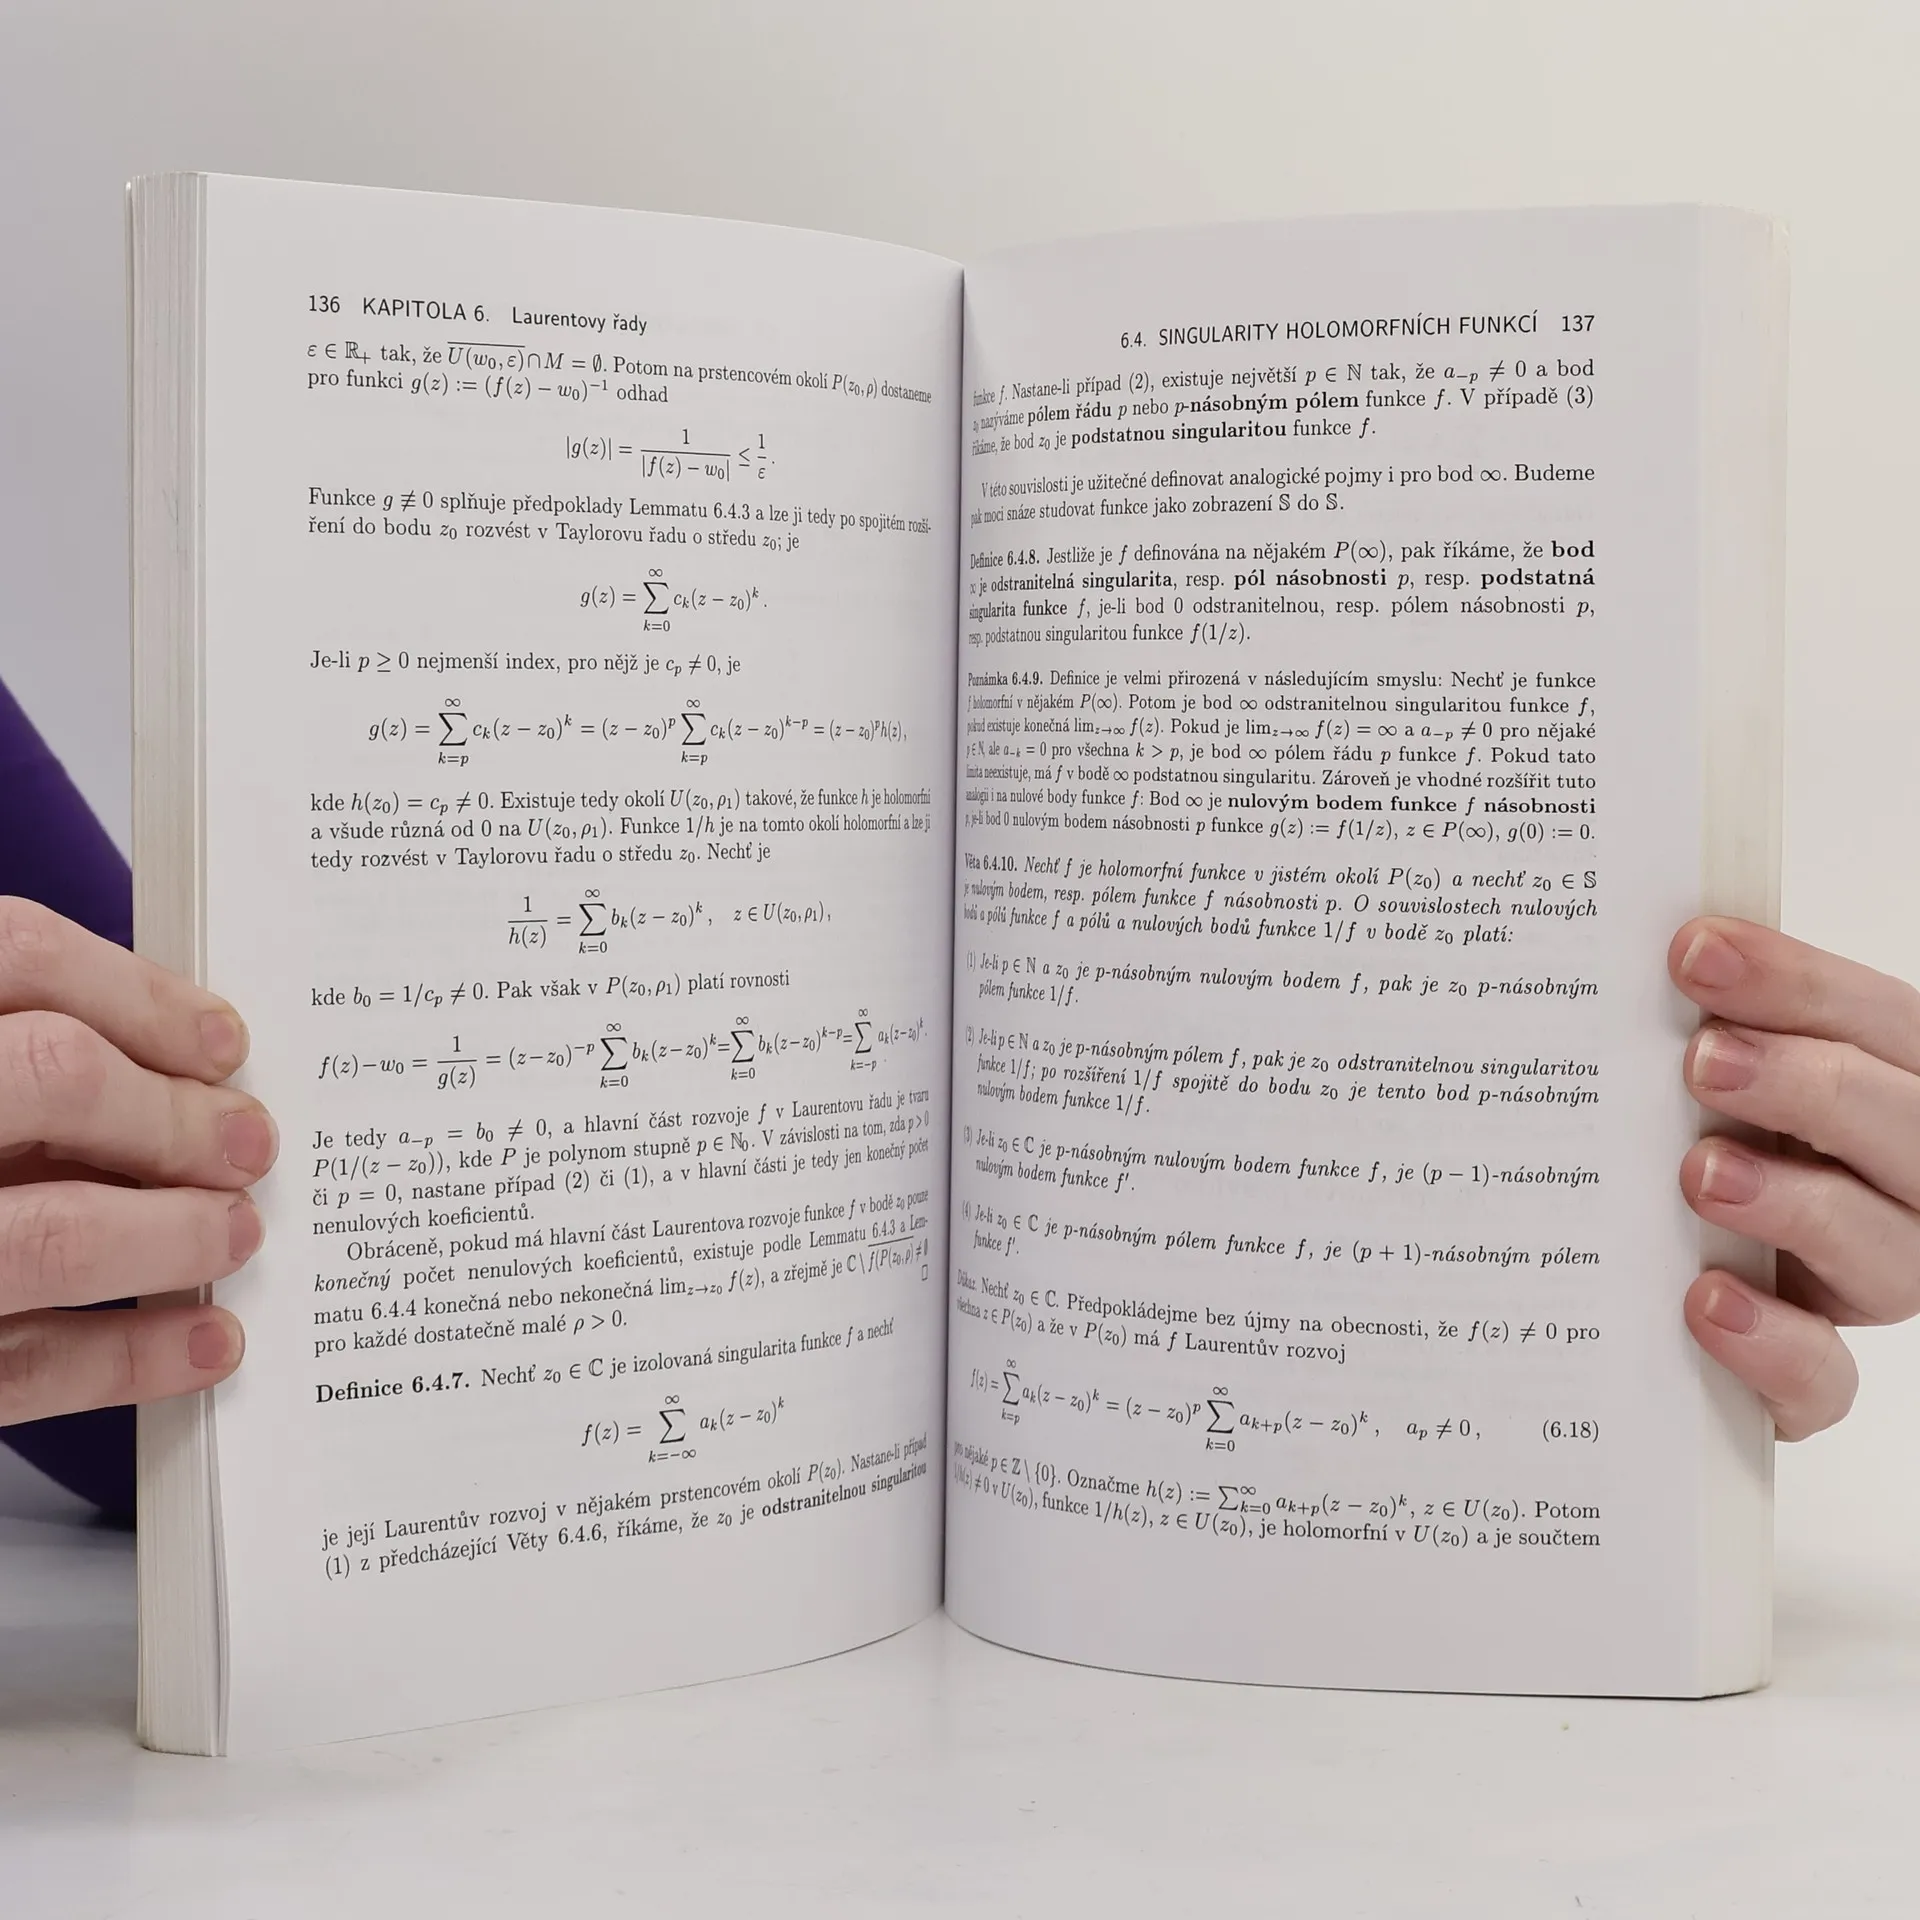 136 KAPITOLA 6. Laurentovy řady
ε ∈ ℝ₊ tak, že U(w₀, ε)∩M = ∅. Potom na prstencovém okolí P(z₀, ρ) dostaneme
pro funkci g(z) := (f(z) − w₀)⁻¹ odhad
|g(z)| = 1/|f(z) − w₀| ≤ 1/ε .
Funkce g ≢ 0 splňuje předpoklady Lemmatu 6.4.3 a lze ji tedy po spojitém rozší-
ření do bodu z₀ rozvést v Taylorovu řadu o středu z₀; je
g(z) = ∑_{k=0}^{∞} c_k(z − z₀)^k .
Je-li p ≥ 0 nejmenší index, pro nějž je c_p ≠ 0, je
g(z) = ∑_{k=p}^{∞} c_k(z − z₀)^k = (z − z₀)^p ∑_{k=p}^{∞} c_k(z − z₀)^{k−p} = (z − z₀)^p h(z),
kde h(z₀) = c_p ≠ 0. Existuje tedy okolí U(z₀, ρ₁) takové, že funkce h je holomorfní
a všude různá od 0 na U(z₀, ρ₁). Funkce 1/h je na tomto okolí holomorfní a lze ji
tedy rozvést v Taylorovu řadu o středu z₀. Nechť je
1/h(z) = ∑_{k=0}^{∞} b_k(z − z₀)^k , z ∈ U(z₀, ρ₁),
kde b₀ = 1/c_p ≠ 0. Pak však v P(z₀, ρ₁) platí rovnosti
f(z)−w₀ = 1/g(z) = (z−z₀)^{−p} ∑_{k=0}^{∞} b_k(z−z₀)^k = ∑_{k=0}^{∞} b_k(z−z₀)^{k−p} = ∑_{k=−p}^{∞} a_k(z−z₀)^k.
Je tedy a_{−p} = b₀ ≠ 0, a hlavní část rozvoje f v Laurentovu řadu je tvaru
P(1/(z − z₀)), kde P je polynom stupně p ∈ ℕ₀. V závislosti na tom, zda p > 0
či p = 0, nastane případ (2) či (1), a v hlavní části je tedy jen konečný počet
nenulových koeficientů.
Obráceně, pokud má hlavní část Laurentova rozvoje funkce f v bodě z₀ pouze
konečný počet nenulových koeficientů, existuje podle Lemmatu 6.4.3 a Lem-
matu 6.4.4 konečná nebo nekonečná lim_{z→z₀} f(z), a zřejmě je ℂ \ f(P(z₀, ρ)) ≠ ∅
pro každé dostatečně malé ρ > 0. □
Definice 6.4.7. Nechť z₀ ∈ ℂ je izolovaná singularita funkce f a nechť
f(z) = ∑_{k=−∞}^{∞} a_k(z − z₀)^k
je její Laurentův rozvoj v nějakém prstencovém okolí P(z₀). Nastane-li případ
(1) z předcházející Věty 6.4.6, říkáme, že z₀ je odstranitelnou singularitou
6.4. SINGULARITY HOLOMORFNÍCH FUNKCÍ 137
funkce f. Nastane-li případ (2), existuje největší p ∈ ℕ tak, že a_{−p} ≠ 0 a bod
z₀ nazýváme pólem řádu p nebo p-násobným pólem funkce f. V případě (3)
říkáme, že bod z₀ je podstatnou singularitou funkce f.
V této souvislosti je užitečné definovat analogické pojmy i pro bod ∞. Budeme
pak moci snáze studovat funkce jako zobrazení 𝕊 do 𝕊.
Definice 6.4.8. Jestliže je f definována na nějakém P(∞), pak říkáme, že bod
∞ je odstranitelná singularita, resp. pól násobnosti p, resp. podstatná
singularita funkce f, je-li bod 0 odstranitelnou, resp. pólem násobnosti p,
resp. podstatnou singularitou funkce f(1/z).
Poznámka 6.4.9. Definice je velmi přirozená v následujícím smyslu: Nechť je funkce
f holomorfní v nějakém P(∞). Potom je bod ∞ odstranitelnou singularitou funkce f,
pokud existuje konečná lim_{z→∞} f(z). Pokud je lim_{z→∞} f(z) = ∞ a a_{−p} ≠ 0 pro nějaké
p ∈ ℕ, ale a_{−k} = 0 pro všechna k > p, je bod ∞ pólem řádu p funkce f. Pokud tato
limita neexistuje, má f v bodě ∞ podstatnou singularitu. Zároveň je vhodné rozšířit tuto
analogii i na nulové body funkce f: Bod ∞ je nulovým bodem funkce f násobnosti
p, je-li bod 0 nulovým bodem násobnosti p funkce g(z) := f(1/z), z ∈ P(∞), g(0) := 0.
Věta 6.4.10. Nechť f je holomorfní funkce v jistém okolí P(z₀) a nechť z₀ ∈ 𝕊
je nulovým bodem, resp. pólem funkce f násobnosti p. O souvislostech nulových
bodů a pólů funkce f a pólů a nulových bodů funkce 1/f v bodě z₀ platí:
(1) Je-li p ∈ ℕ a z₀ je p-násobným nulovým bodem f, pak je z₀ p-násobným
pólem funkce 1/f.
(2) Je-li p ∈ ℕ a z₀ je p-násobným pólem f, pak je z₀ odstranitelnou singularitou
funkce 1/f; po rozšíření 1/f spojitě do bodu z₀ je tento bod p-násobným
nulovým bodem funkce 1/f.
(3) Je-li z₀ ∈ ℂ je p-násobným nulovým bodem funkce f, je (p − 1)-násobným
nulovým bodem funkce f′.
(4) Je-li z₀ ∈ ℂ je p-násobným pólem funkce f, je (p + 1)-násobným pólem
funkce f′.
Důkaz. Nechť z₀ ∈ ℂ. Předpokládejme bez újmy na obecnosti, že f(z) ≠ 0 pro
všechna z ∈ P(z₀) a že v P(z₀) má f Laurentův rozvoj
f(z) = ∑_{k=p}^{∞} a_k(z − z₀)^k = (z − z₀)^p ∑_{k=0}^{∞} a_{k+p}(z − z₀)^k , a_p ≠ 0 , (6.18)
pro nějaké p ∈ ℤ \ {0}. Označme h(z) := ∑_{k=0}^{∞} a_{k+p}(z − z₀)^k, z ∈ U(z₀). Potom
1/h(z) ≠ 0 v U(z₀), funkce 1/h(z), z ∈ U(z₀), je holomorfní v U(z₀) a je součtem